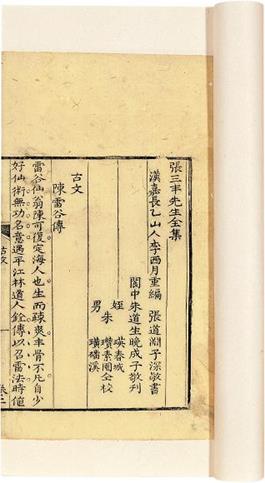 張三丰先生全集
漢嘉長乙山人李西月重編　張道淵子深敬書
閬中朱道生晚成子敬刋
姪　瑛春城
朱　瓚素圃仝校
男　璜磻溪
古文
陳雷谷傳
雷谷仙翁陳可復定海人也生而疎爽丰骨不凡自少
好仙術無功名意遇平江林道人銓傳以召雷法時値
古文